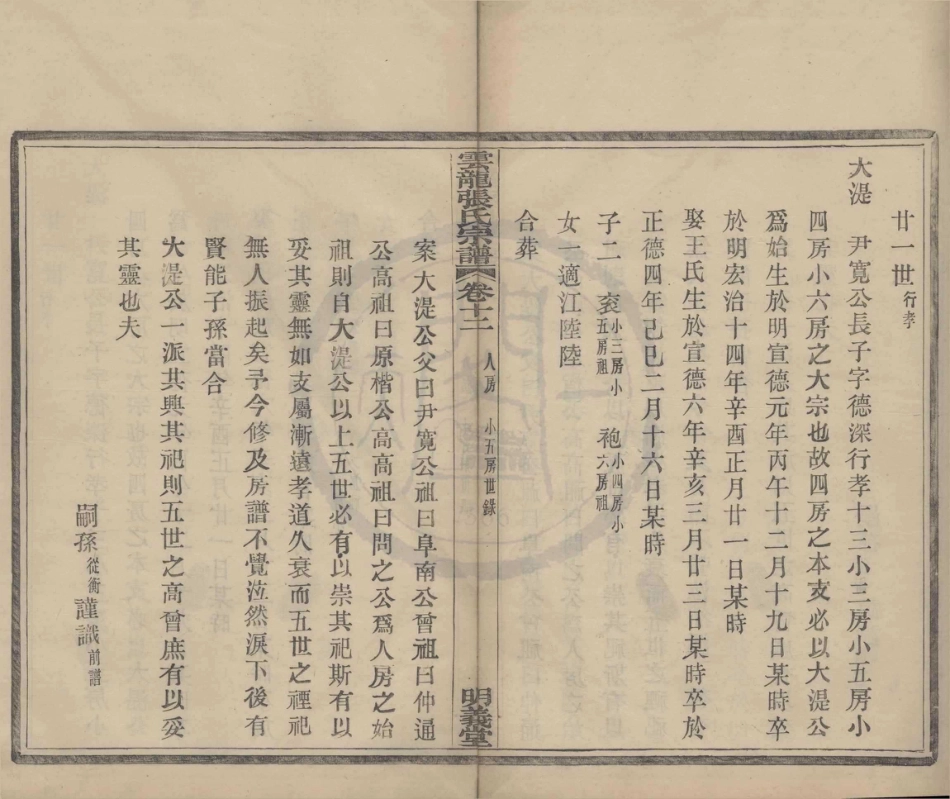 廿一世行孝
大湜 尹寬公長子字德深行孝十三小三房小五房小
四房小六房之大宗也故四房之本支必以大湜公
爲始生於明宣德元年丙午十二月十九日某時卒
於明宏治十四年辛酉正月廿一日某時
娶王氏生於宣德六年辛亥三月廿三日某時卒於
正德四年己巳二月十六日某時
子二 袞小三房小五房祖 袍小四房小六房祖
女一適江陞陸
合葬
雲龍張氏宗譜 卷十二 人房 小五房世錄 明義堂
案大湜公父曰尹寬公祖曰阜南公曾祖曰仲通
公高祖曰原楷公高高祖曰問之公爲人房之始
祖則自大湜公以上五世必有以崇其祀斯有以
妥其靈無如支屬漸遠孝道久衰而五世之禋祀
無人振起矣予今修及房譜不覺泣然淚下後有
賢能子孫當合
大湜公一派其興其祀則五世之高曾庶有以妥
其靈也夫
嗣孫從衡謹識前譜